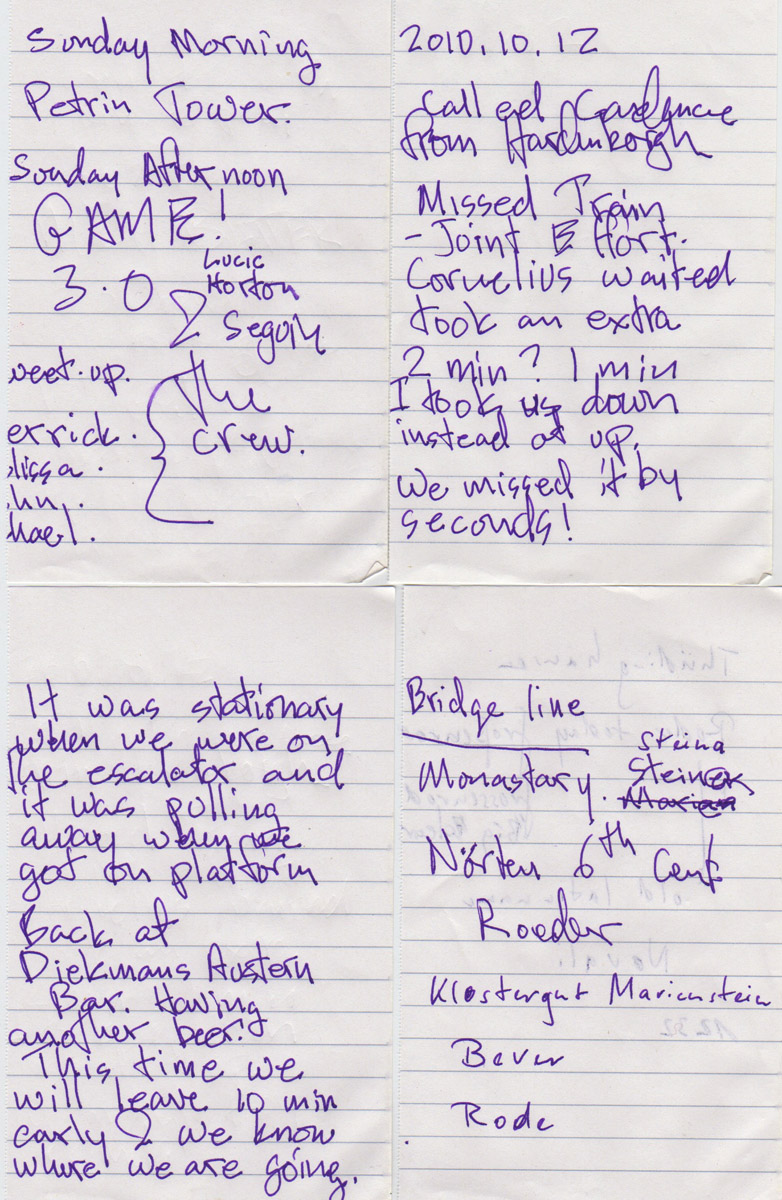 Sunday Morning
Petrin Tower.
Sunday Afternoon
GAME!
3.0
Lucic
Horton
& Seguin
weet.up.
The
crew.
errick.
lissa.
hn.
hael.
2010.10.12
Called
from
Missed Train
- Joint Effort.
Cornelius waited
took an extra
2 min? 1 min
I took us down
instead of up.
we missed it by
seconds!
It was stationary
when we were on
the escalator and
it was pulling
away when we
got on platform
Back at
Diekmans Austern
Bar. Having
another beer.
This time we
will leave 10 min
early & we know
where we are going.
Bridge line
Steina
Monastary. Steiner
Nörten 6th Cent
Roeder
Klostergut Marienstein
Bever
Rode